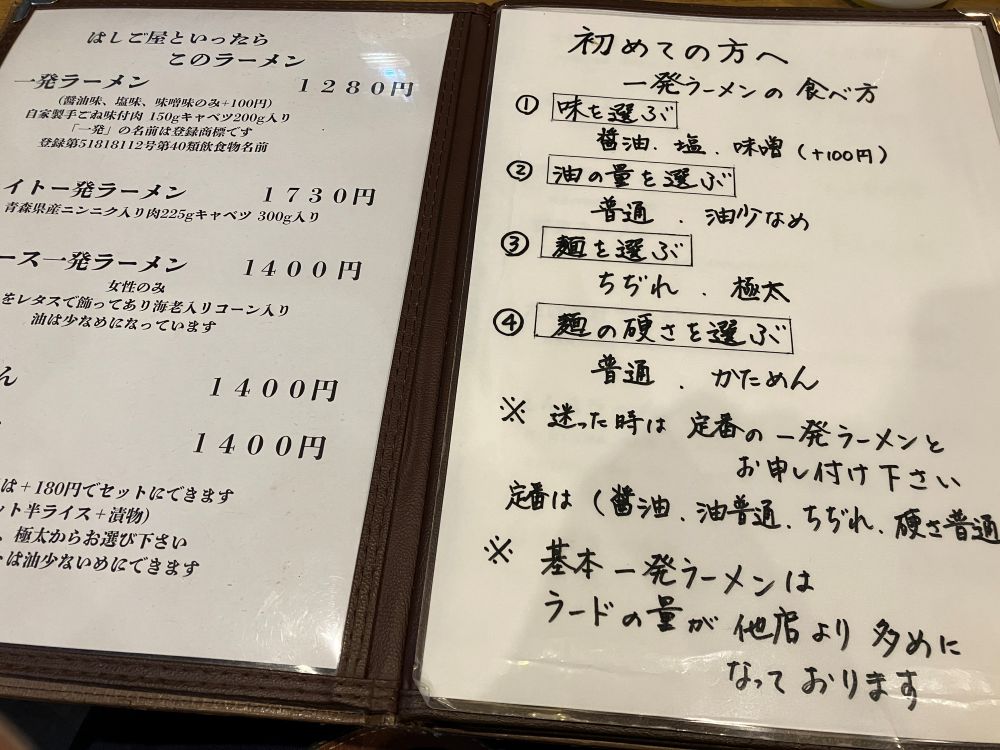 はしご屋といったら
このラーメン
一発ラーメン 1280円
(醤油味、塩味、味噌味のみ+100円)
自家製手ごね味付肉 150gキャベツ200g入り
「一発」の名前は登録商標です
登録第51818112号第40類飲食物名前
イト一発ラーメン 1730円
青森県産ニンニク入り肉225gキャベツ 300g入り
ース一発ラーメン 1400円
女性のみ
をレタスで飾ってあり海老入りコーン入り
油は少なめになっています
ん 1400円
1400円
は+180円でセットにできます
ット半ライス+漬物)
、極太からお選び下さい
は油少ないめにできます
初めての方へ
一発ラーメンの食べ方
① 味を選ぶ
醤油、塩、味噌(+100円)
② 油の量を選ぶ
普通、油少なめ
③ 麺を選ぶ
ちぢれ、極太
④ 麺の硬さを選ぶ
普通、かためん
※ 迷った時は 定番の一発ラーメンと
お申し付け下さい
定番は(醤油、油普通、ちぢれ、硬さ普通
※ 基本一発ラーメンは
ラードの量が他店より多めに
なっております